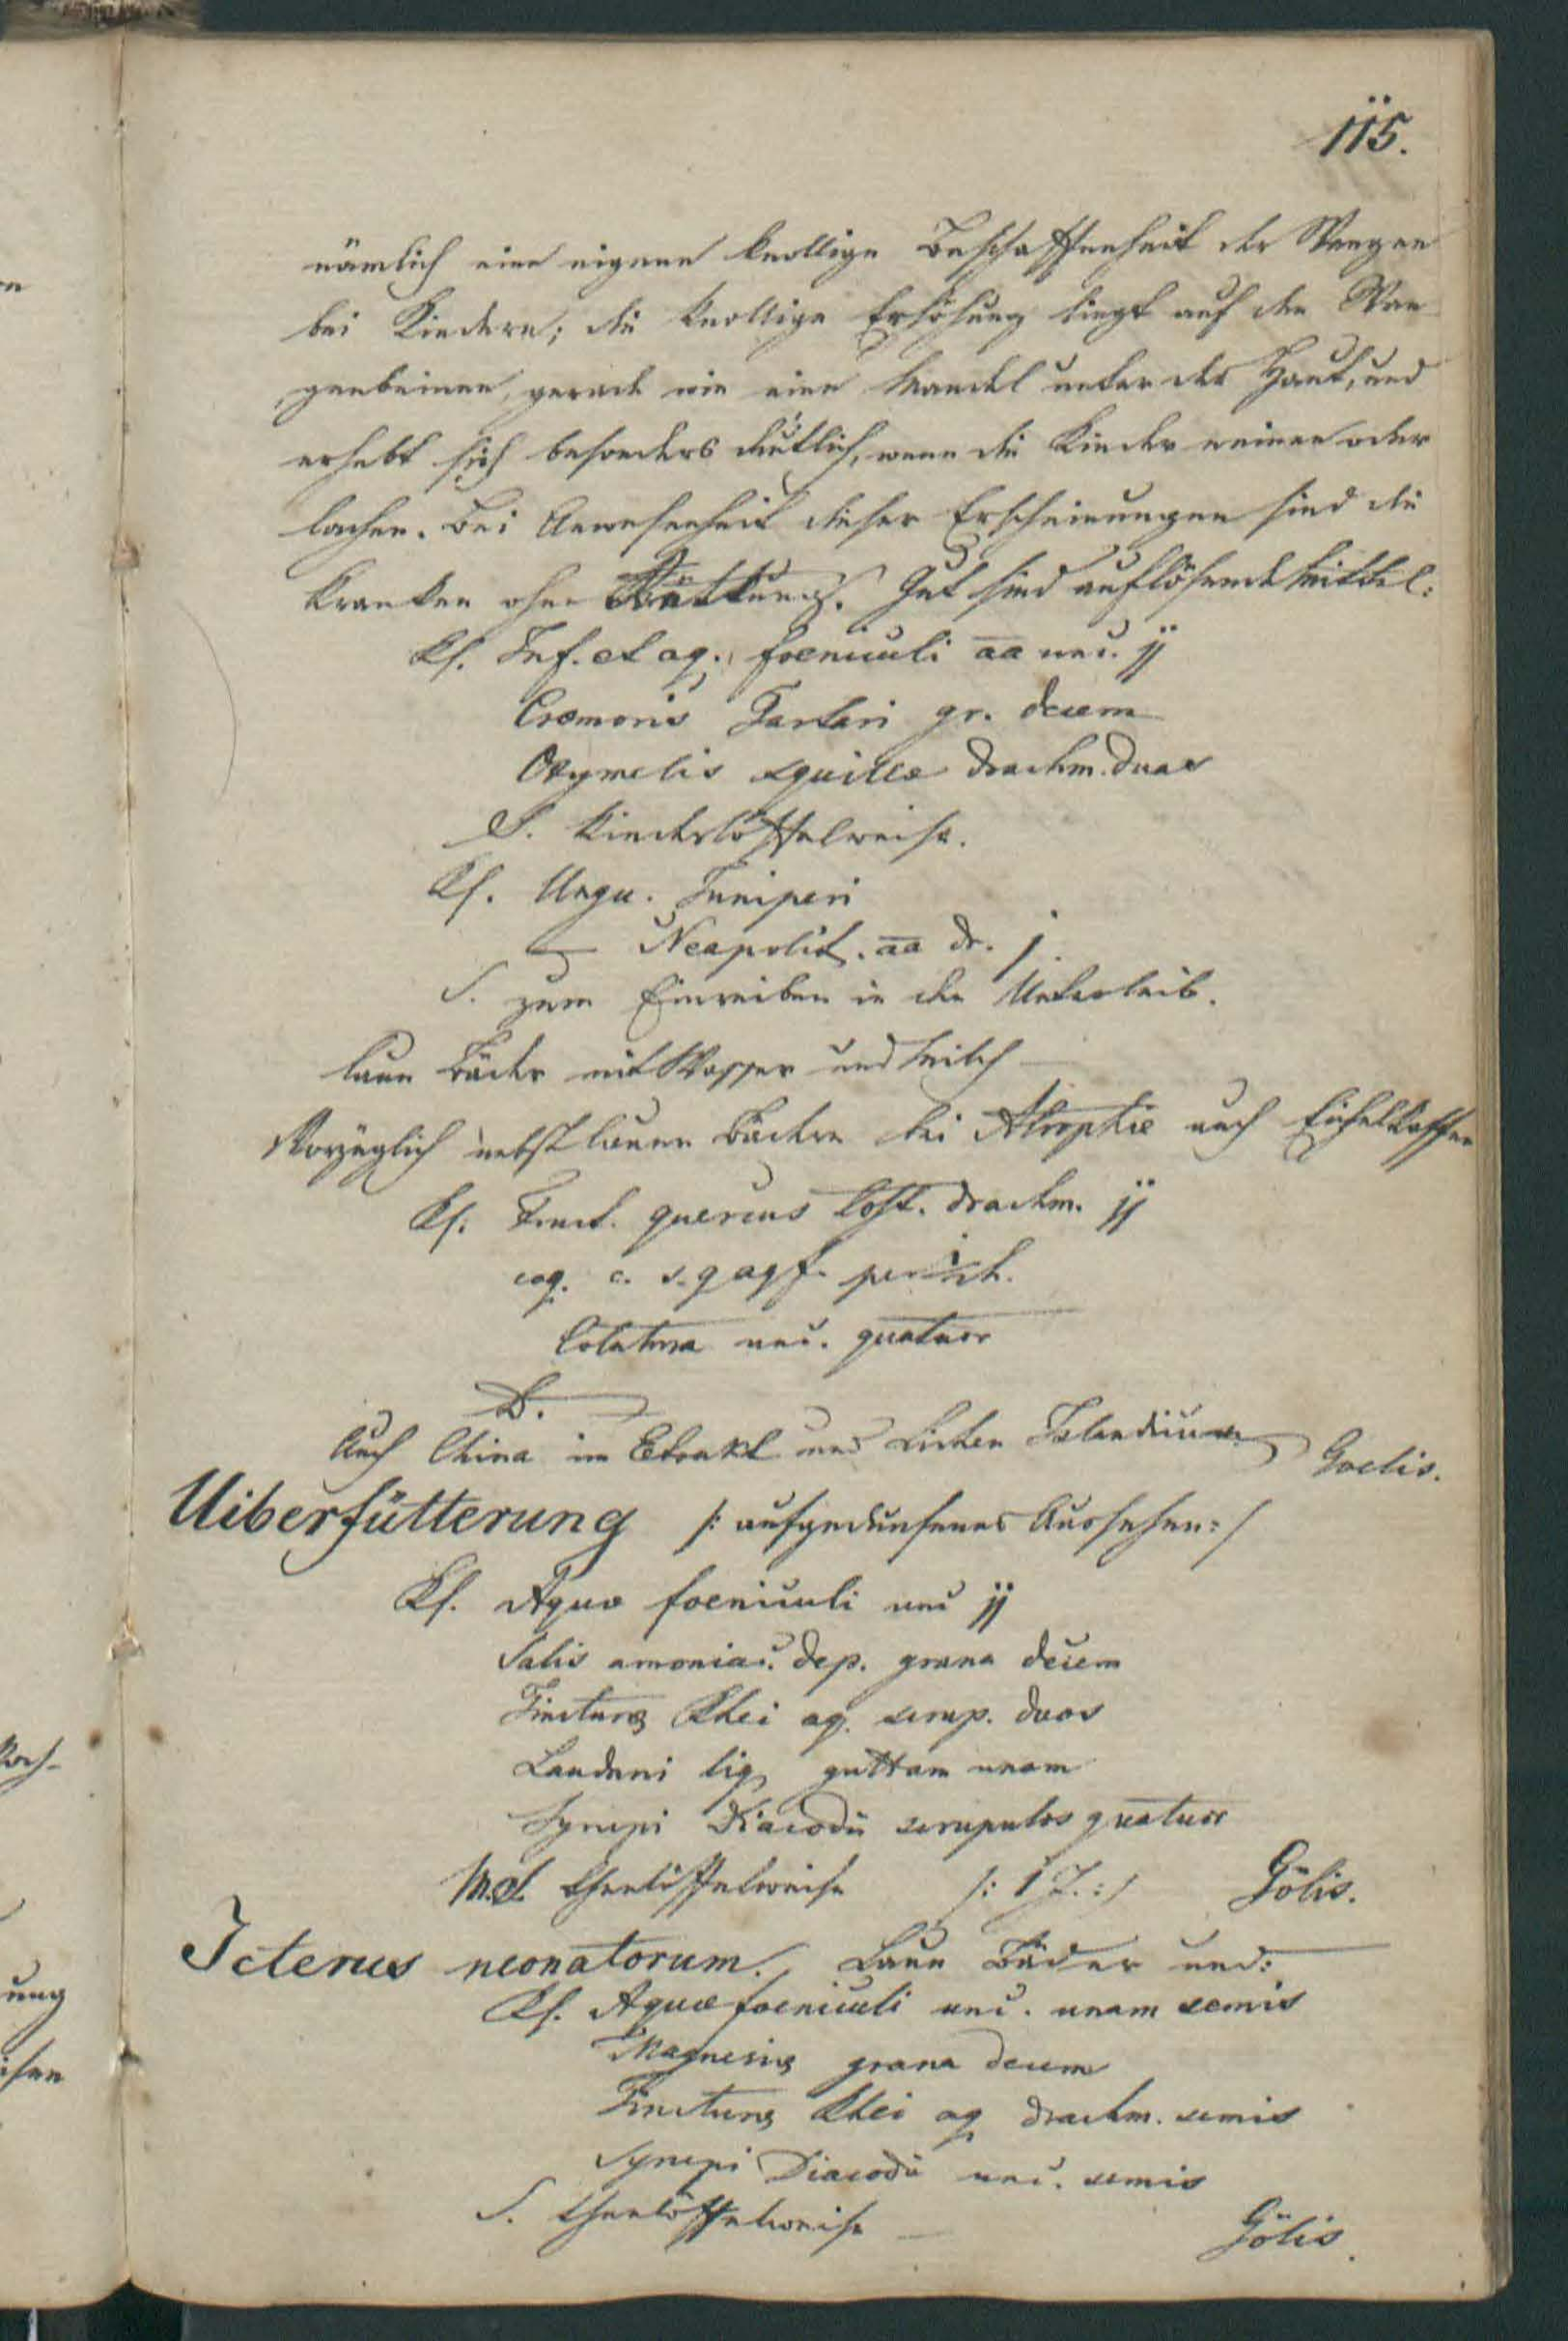 115.
nämlich eine eigene knollige Beschaffenheit der Wangen
bei Kindern; die knollige Erhöhung liegt auf den Wan
genbeinen, gerade wie eine Mandel unter der Haut, und
erhebt sich besonders deutlich, wenn die Kinder weinen oder
lachen. Bei Anwesenheit dieser Erscheinungen sind die
Kranken ohne Rettung. Gut sind auflösende Mittel:
Rp. Inf. et aq. foeniculi aa unc. jj
Cremoris Tartari gr. decem
Oxymelis squillae drachm. duas
S. Kinderlöffelweise.
Rp. Ungu. Juniperi
— Neapolit. aa dr. j
S. zum Einreiben in den Unterleib.
laue Bäder mit Wasser und Milch —
Vorzüglich nebst lauen Bädern bei Atrophie auch Eichelkaffee
Rp. Fruct. quercus tost. drachm. jj
coq. c. s. q aq f. per
Colatura unc. quatuor
D.
Auch China im Extrakt und Lichen Islandicum Goelis.
Uiberfütterung /: aufgedunsenes Aussehen :/
Rp. Aquae foeniculi unc jj
Salis amoniac. dep. grana decem
Tincturae Rhei aq. scrup. duos
Laudani liq guttam unam
Syrupi Diacodii scrupulos quatuor
M.d. Theelöffelweise /: 1 J. :/ Gölis.
Icterus neonatorum. Laue Bäder und:
Rp. Aquae foeniculi unc. unam semis
Magnesiae grana decem
Tincturae Rhei aq drachm. semis
Syrupi Diacodii unc. semis
S. Theelöffelweise — Gölis.